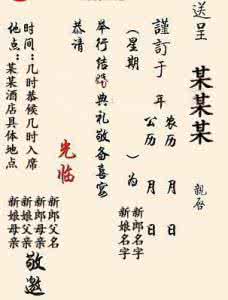 送呈
某某某
親启
謹訂于 年
农历 月 日
公历 月 日
(星期 ) 为
新郎名字
新娘名字
举行结婚典礼敬备喜宴
恭请
光临
时间:几时恭候几时入席
地点:某某酒店具体地点
新郎父名
新郎母亲
新娘父亲
新娘母亲
敬邀